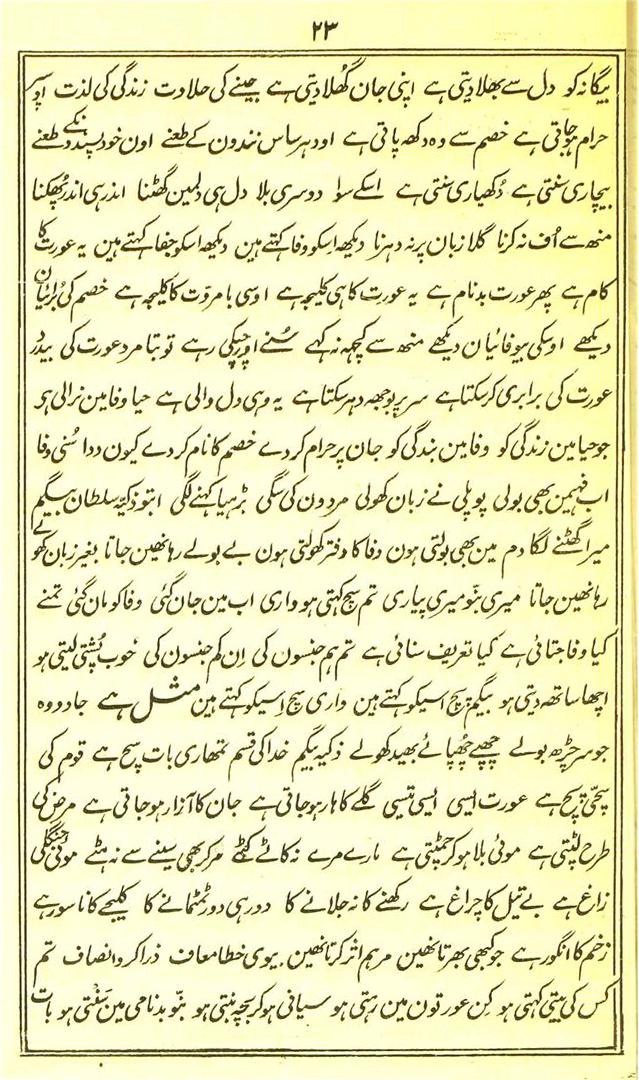 ۲۳
بیگانہ کو دل سے بھلا دیتی ہے اپنی جان گھلا دیتی ہے جینے کی حلاوت زندگی کی لذت اوسپر
حرام ہو جاتی ہے خصم سے وہ دکھہ پاتی ہے اودہر ساس نندون کے طعنے اون خود پسند
بیچاری سنتی ہے دُکھیاری سنتی ہے اسکے سوا دوسری بلا دل ہی دلمین گھٹنا اندر ہی اندر پُھکنا
منھ سے اُف نہ کرنا گلا زبان پر نہ دہرنا دیکھ اِسکو وفا کہتے ہین دیکھ اسکو جفا کہتے ہین یہ عورت کا
کام ہے پھر عورت بدنام ہے یہ عورت کا ہی کلیجہ ہے اوسی با مروّت کا کلیجہ ہے خصم کی بُرائیان
دیکھے اوسکی بیوفائیان دیکھے منھ سے کچھہ نہ کہے سُنے اور چپکی رہے تو بتا مرد عورت کی
عورت کی برابری کر سکتا ہے سر پر بوجھہ دہر سکتا ہے یہ وہی دل والی ہے حیا وفا مین نرالی ہو
جو حیا مین زندگی کو وفا مین بندگی کو جان پر حرام کردے خصم کا نام کردے کیون ددا سُنی وفا
اب فہیمن بھی بولی پوپلی نے زبان کھولی مردون کی سگی بڑہیا کہنے لگی ابتو ذکیہ سلطان بیگم
میرا گھٹنے لگا دم مین بھی بولتی ہون وفا کا دفتر کھولتی ہون بے بولے رہا نھین جاتا بغیر زبان کھولے
رہا نھین جاتا میری بنّو میری پیاری تم سچ کہتی ہو واری اب مین جان گئی وفا کو مان گئی تمنے
کیا وفا جتائی ہے کیا تعریف سنائی ہے تم ہم جنسون کی اِن کم جنسون کی خوب پُشتی لیتی ہو
اچھا ساتھہ دیتی ہو بیگم سچ اسیکو کہتے ہین واری سچ اِسیکو کہتے ہین مثل ہے جادو وہ
جو سر چڑھ بولے چھپے چُھپائے بھید کھولے ذکیہ بیگم خدا کی قسم تمھاری بات سچ ہے قوم کی
پچّی پچ ہے عورت ایسی ایسی تیسی گلے کا ہار ہو جاتی ہے جان کا آزار ہو جاتی ہے مرض کی
طرح لپٹتی ہے موئی بلا ہو کر چمٹتی ہے مارے مرے نہ کاٹے کٹے مر کر بھی سینے سے نہ ہٹے موئی جنگلی
زاغ ہے بے تیل کا چراغ ہے رکھنے کا نہ جلانے کا دور ہی دور ٹمٹمانے کا کلیجے کا ناسور ہے
زخم کا انگور ہے جو کبھی بھرتا نھین مرہم اثر کرتا نھین بیوی خطا معاف ذرا کرو انصاف تم
کس کی بیتی کہتی ہو کِن عورتون مین رہتی ہو سیانی ہو کر بچہ بنتی ہو بنّو بدنامی مین سَنْتی ہو بات